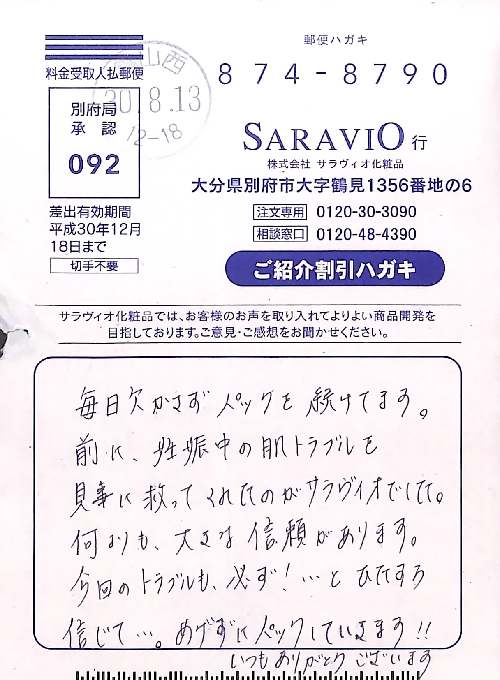 郵便ハガキ
料金受取人払郵便
874-8790
山西
30.8.13
12-18
別府局
承認
092
SARAVIO行
株式会社 サラヴィオ化粧品
大分県別府市大字鶴見1356番地の6
差出有効期間
平成30年12月
18日まで
切手不要
注文専用 0120-30-3090
相談窓口 0120-48-4390
ご紹介割引ハガキ
サラヴィオ化粧品では、お客様のお声を取り入れてよりよい商品開発を
目指しております。ご意見・ご感想をお聞かせください。
毎日欠かさずパックを続けてます。
前に、妊娠中の肌トラブルを
見事に救ってくれたのがサラヴィオでした。
何よりも、大きな信頼があります。
今回のトラブルも、必ず!…とひたすら
信じて…。めげずにパックしていきます!!
いつもありがとうございます